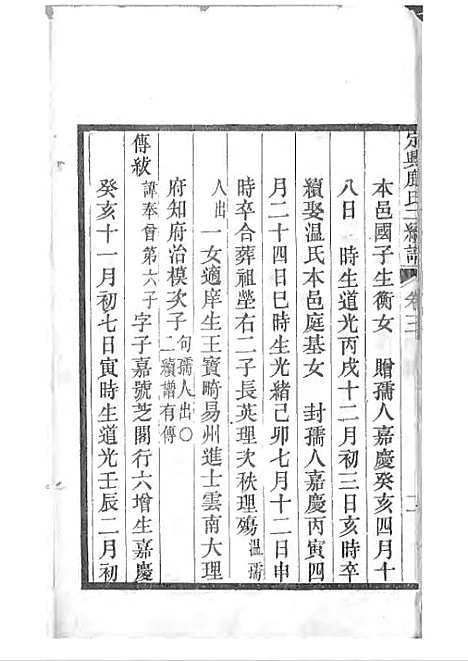 定興鹿氏二續譜 卷三
本邑國子生衡女 贈孺人嘉慶癸亥四月十
八日 時生道光丙戌十二月初三日亥時卒
續娶温氏本邑庭基女 封孺人嘉慶丙寅四
月二十四日巳時生光緒己卯七月十二日申
時卒合葬祖塋右二子長英理次秩理殤温孺
人出一女適庠生王寶畸易州進士雲南大理
府知府治模次子句孺人出〇二續譜有傳
傳紱諱奉曾第六子字子嘉號芝閣行六增生嘉慶
癸亥十一月初七日寅時生道光壬辰二月初